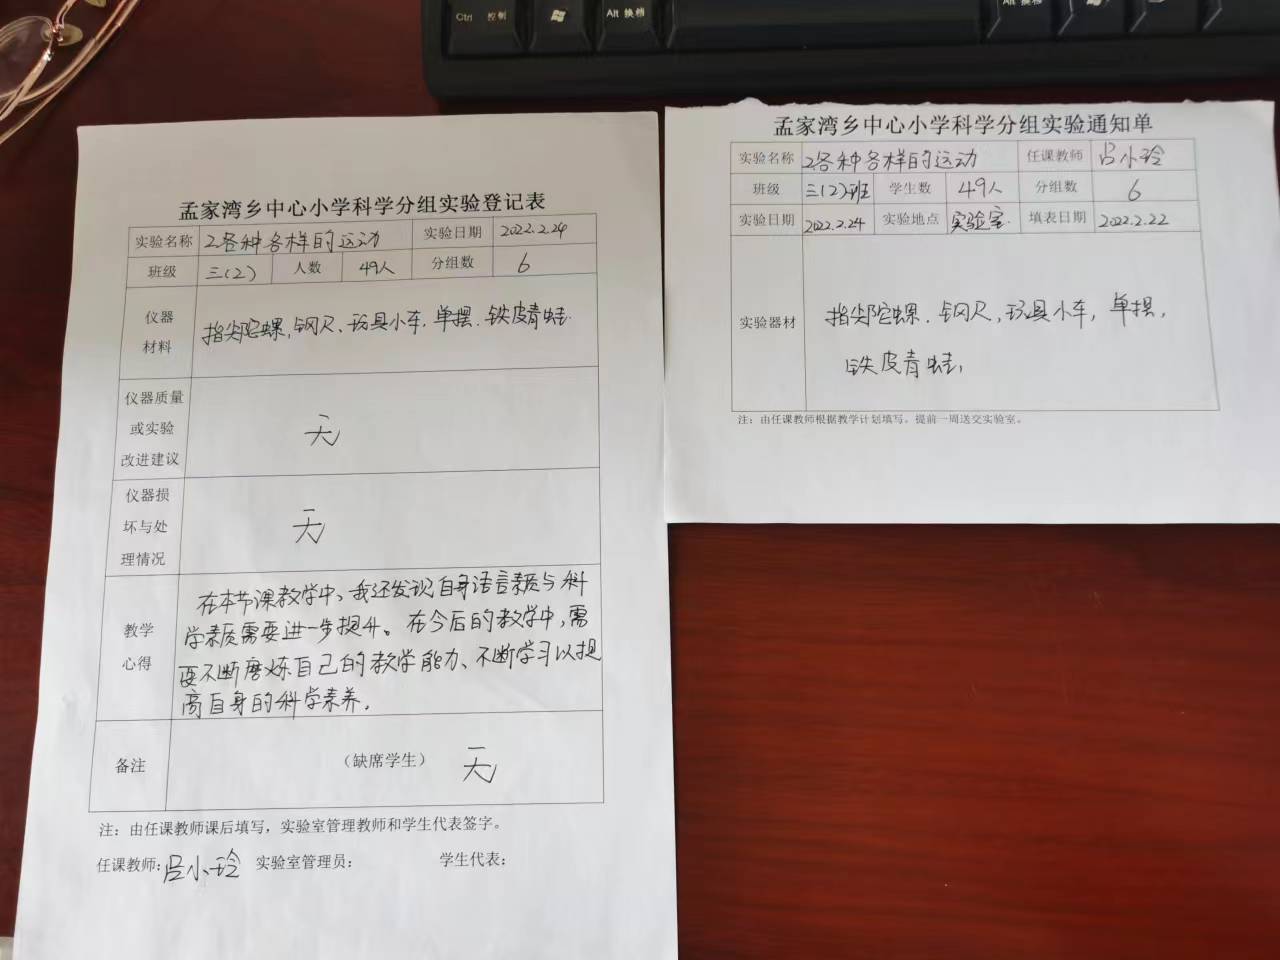 Ctrl 控制
Alt 换档
Alt 换档
孟家湾乡中心小学科学分组实验登记表
实验名称 2各种各样的运动 实验日期 2022.2.24
班级 三(2) 人数 49人 分组数 6
仪器
材料
指尖陀螺,钢尺、玩具小车,单摆.铁皮青蛙.
仪器质量
或实验
改进建议
无
仪器损
坏与处
理情况
无
教学
心得
在本节课教学中,我还发现自身语言素质与科
学素质需要进一步提升。在今后的教学中,需
要不断磨炼自己的教学能力、不断学习以提
高自身的科学素养.
备注 (缺席学生) 无
注:由任课教师课后填写,实验室管理教师和学生代表签字。
任课教师:吕小玲 实验室管理员: 学生代表:
孟家湾乡中心小学科学分组实验通知单
实验名称 2各种各样的运动 任课教师 吕小玲
班级 三(2)班 学生数 49人 分组数 6
实验日期 2022.2.24 实验地点 实验室. 填表日期 2022.2.22
实验器材
指尖陀螺.钢尺,玩具小车,单摆,
铁皮青蛙,
注:由任课教师根据教学计划填写。提前一周送交实验室。